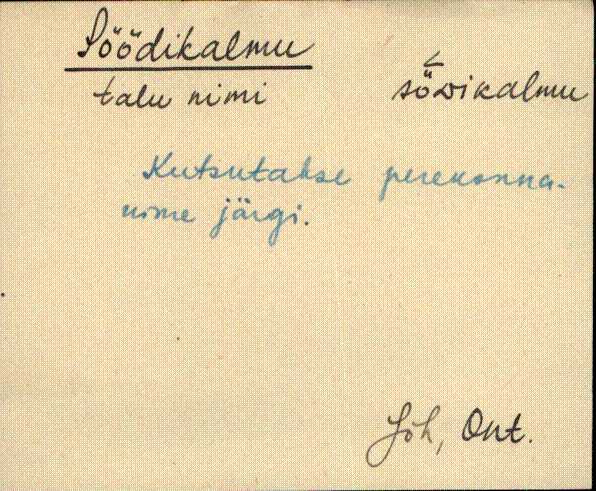 Söödikalmu
talu nimi sö̀ɷikalmu
Kutsutakse perekonna-
nime järgi.
Jõh, Ont.